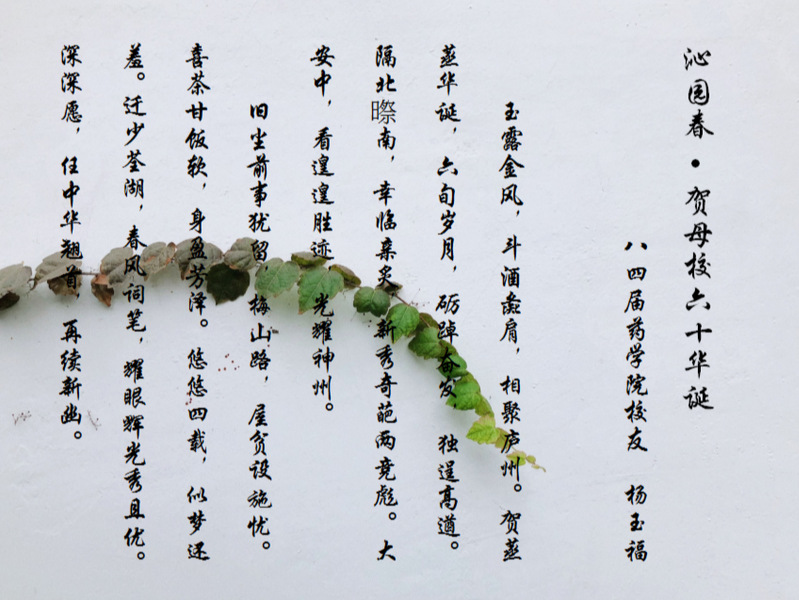 沁园春•贺母校六十华诞
八四届药学院校友 杨玉福
玉露金风，斗酒彘肩，相聚庐州。贺蒸
蒸华诞，六旬岁月，砺踔奋发 独逞高遒。
隔北南，幸临亲炙 新秀奇葩两竞彪。大
安中，看遑遑胜迹 光耀神州。
旧尘前事犹留，梅山路，屋贫设施忧。
喜荼甘饭软，身盈芳泽。悠悠四载，似梦还
羞。迁少荃湖，春风词笔，耀眼辉光秀且优。
深深愿，任中华翘首，再续新幽。